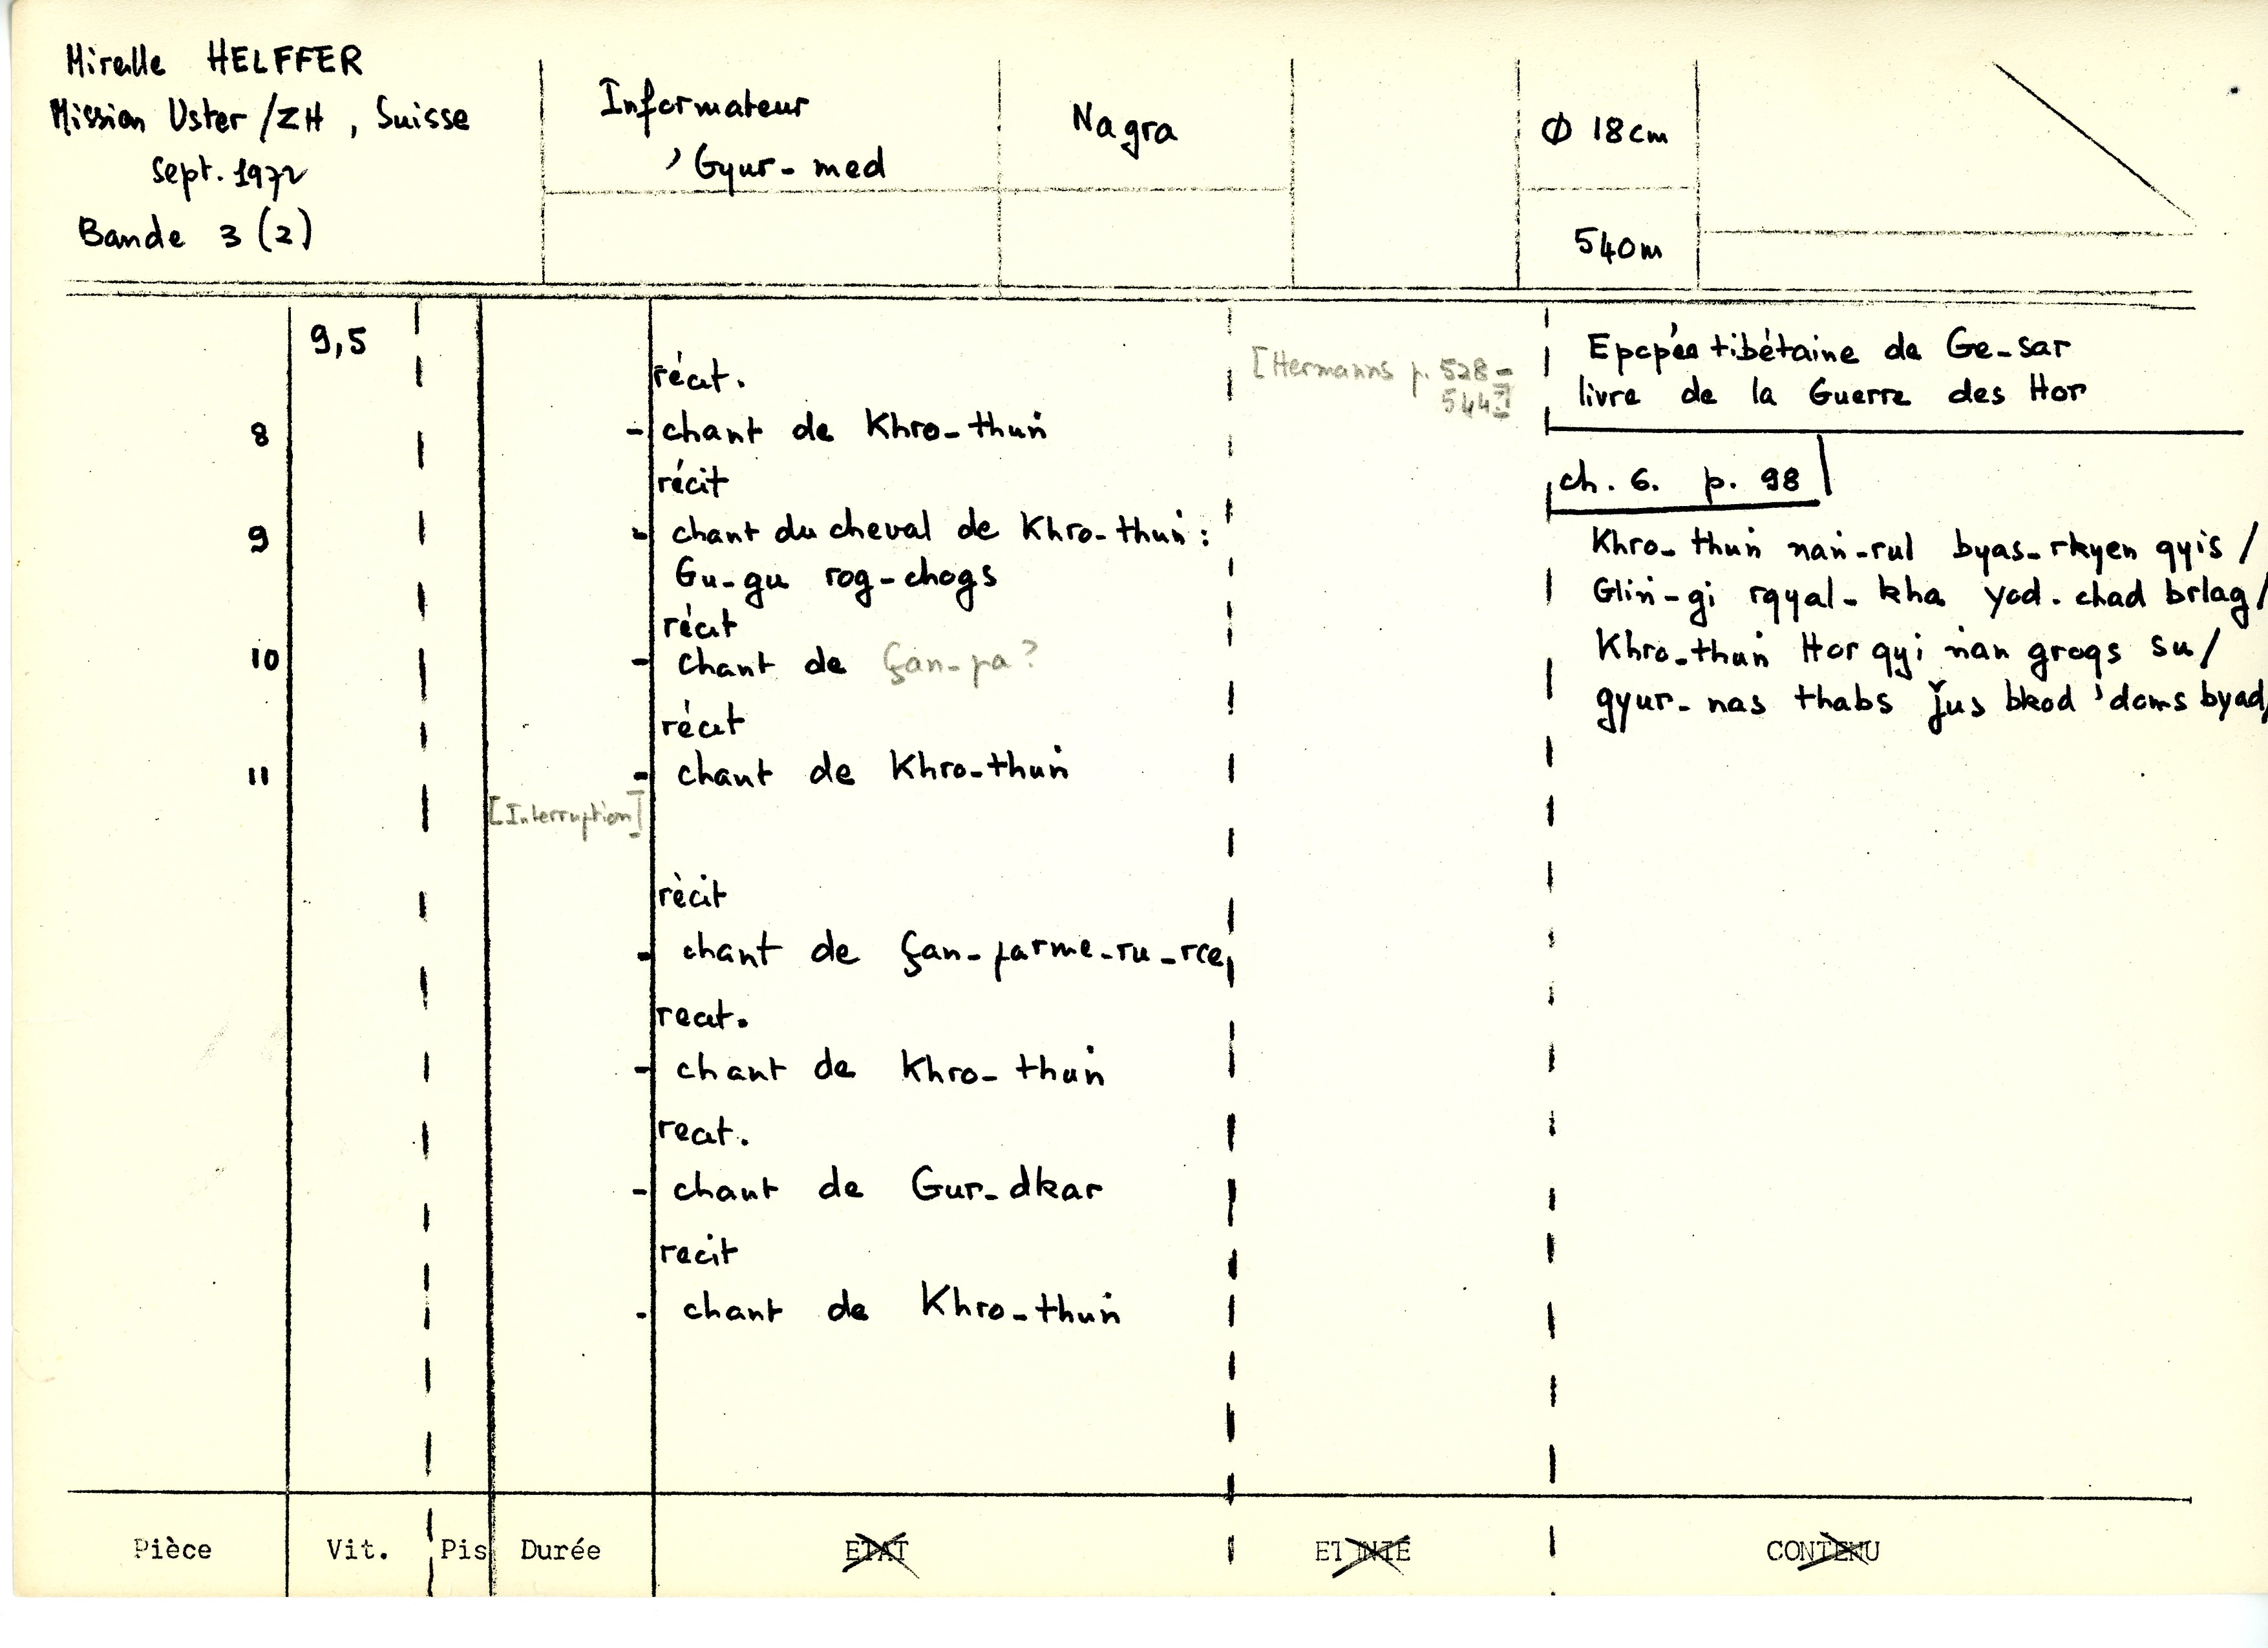 Mireille HELFFER
Mission Uster /ZH , Suisse
Sept. 1972
Bande 3 (2)
Informateur
'Gyur-med
Nagra
Ø 18cm
540m
9,5
récit.
8 - chant de Khro-thuṅ
récit
9 - chant du cheval de Khro-thuṅ :
Gu-gu rog-chogs
récit
10 - chant de Çan-pa ?
récit
11 - chant de Khro-thuṅ
[Interruption]
rècit
- chant de Çan-pa rme-ru-rce
recit.
- chant de Khro-thuṅ
recit.
- chant de Gur-dkar
recit
- chant de Khro-thuṅ
[Hermanns p. 528-
544?]
Epopée tibétaine de Ge-sar
livre de la Guerre des Hor
ch. 6. p. 98
Khro-thuṅ naṅ-rul byas-rkyen gyis /
Gliṅ-gi rgyal-kha yod-chad brlag /
Khro-thuṅ Hor gyi ṅan grogs su /
gyur-nas thabs ǰus bkod 'doms byad/
Pièce Vit. Pis Durée ETAT ETHNIE CONTENU